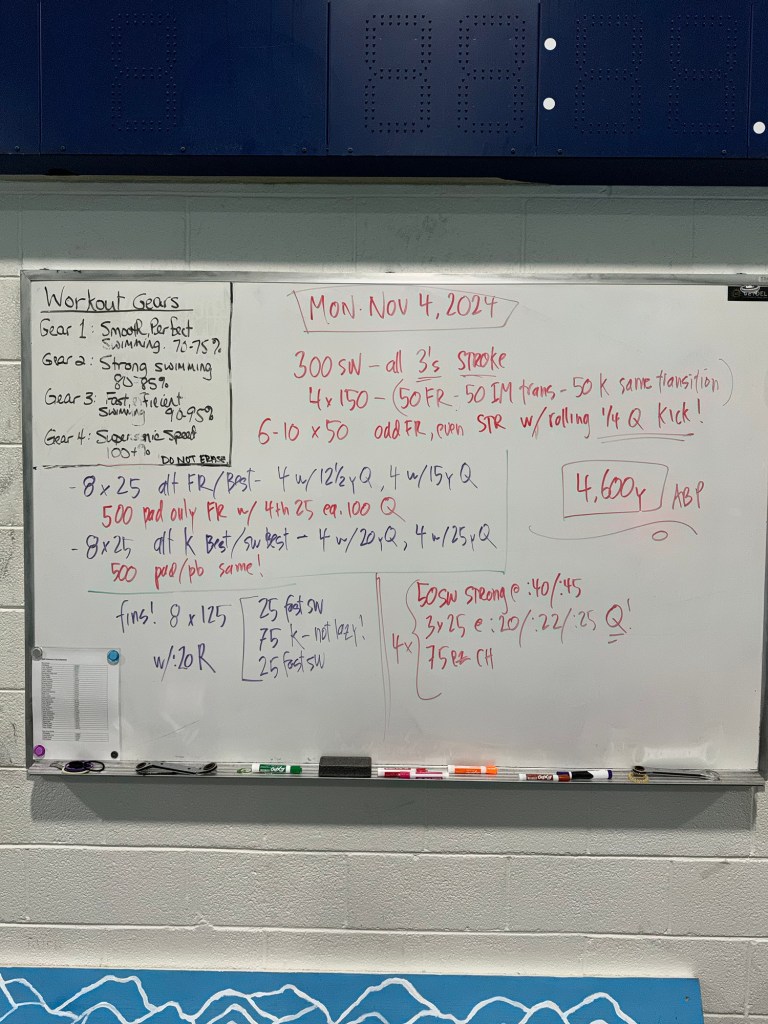 Workout Gears
Gear 1: Smooth, Perfect
Swimming. 70-75%
Gear 2: Strong swimming
80-85%
Gear 3: Fast, Efficient
Swimming 90-95%
Gear 4: Supersonic Speed
100+%
DO NOT ERASE
MON. NOV 4, 2024
300 SW - all 3's STROKE
4 x 150 - (50 FR - 50 IM trans - 50 K same transition)
6-10 x 50 odd FR, even STR w/rolling 1/4 Q Kick!
- 8 x 25 alt FR/Best - 4 w/12½y Q, 4 w/15y Q
500 pad only FR w/ 4th 25 ea. 100 Q
- 8x25 alt K Best/sw Best - 4 w/20y Q, 4 w/25y Q
500 pad/pb same!
4,600y ABP
fins! 8 x 125
w/:20 R
25 fast sw
75 K - not lazy!
25 fast sw
4x
50 SW strong @ :40/:45
3 x 25 @ :20/:22/:25 Q!
75 ez CH
EXPO